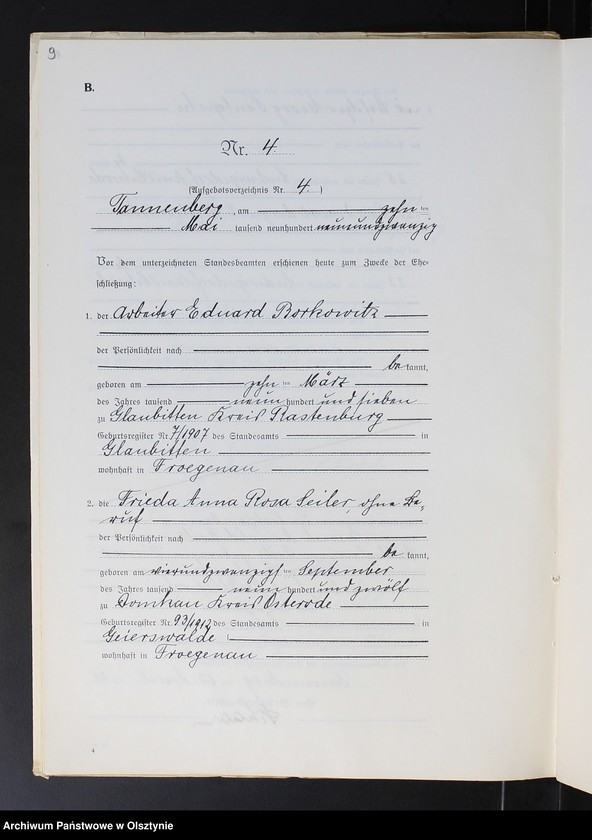 9
B.
Nr. 4.
(Aufgebotsverzeichnis Nr. 4.)
Tannenberg, am zehn ten
Mai tausend neunhundert neunundzwanzig
Vor dem unterzeichneten Standesbeamten erschienen heute zum Zwecke der Ehe-
schließung:
1. der Arbeiter Eduard Borkowitz
der Persönlichkeit nach
be kannt,
geboren am zehn ten März
des Jahres tausend neun hundert und sieben
zu Glaubitten Kreis Rastenburg
Geburtsregister Nr. 7/1907 des Standesamts in
Glaubitten
wohnhaft in Froegenau
2. die Frieda Anna Rosa Seiler, ohne Be-
ruf
der Persönlichkeit nach
be kannt,
geboren am vierundzwanzigs ten September
des Jahres tausend neun hundert und zwölf
zu Domkau Kreis Osterode
Geburtsregister Nr. 93/1912 des Standesamts in
Geierswalde
wohnhaft in Froegenau
4
Archiwum Państwowe w Olsztynie